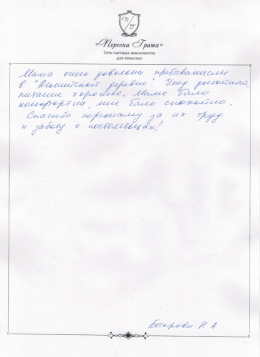 «Персона Грата»
Сеть частных пансионатов
для пожилых
Мама очень довольна пребыванием
в "Румянцево". Уход достойный,
питание хорошее. Маме было
комфортно, мне было спокойно.
Спасибо персоналу за их труд
и заботу о постояльцах!